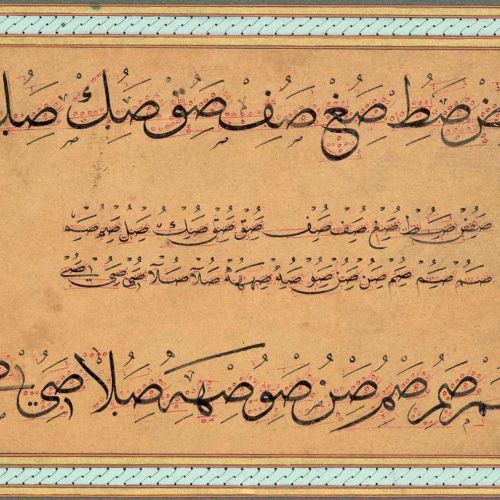 صط صغ صف صق صك صل
صط صغ صف صف صق صق صك صل صم صه
صم صم صم صن صن صو صه صهه صلا صلا صى صى
صم صم صن صو صهه صلا صي